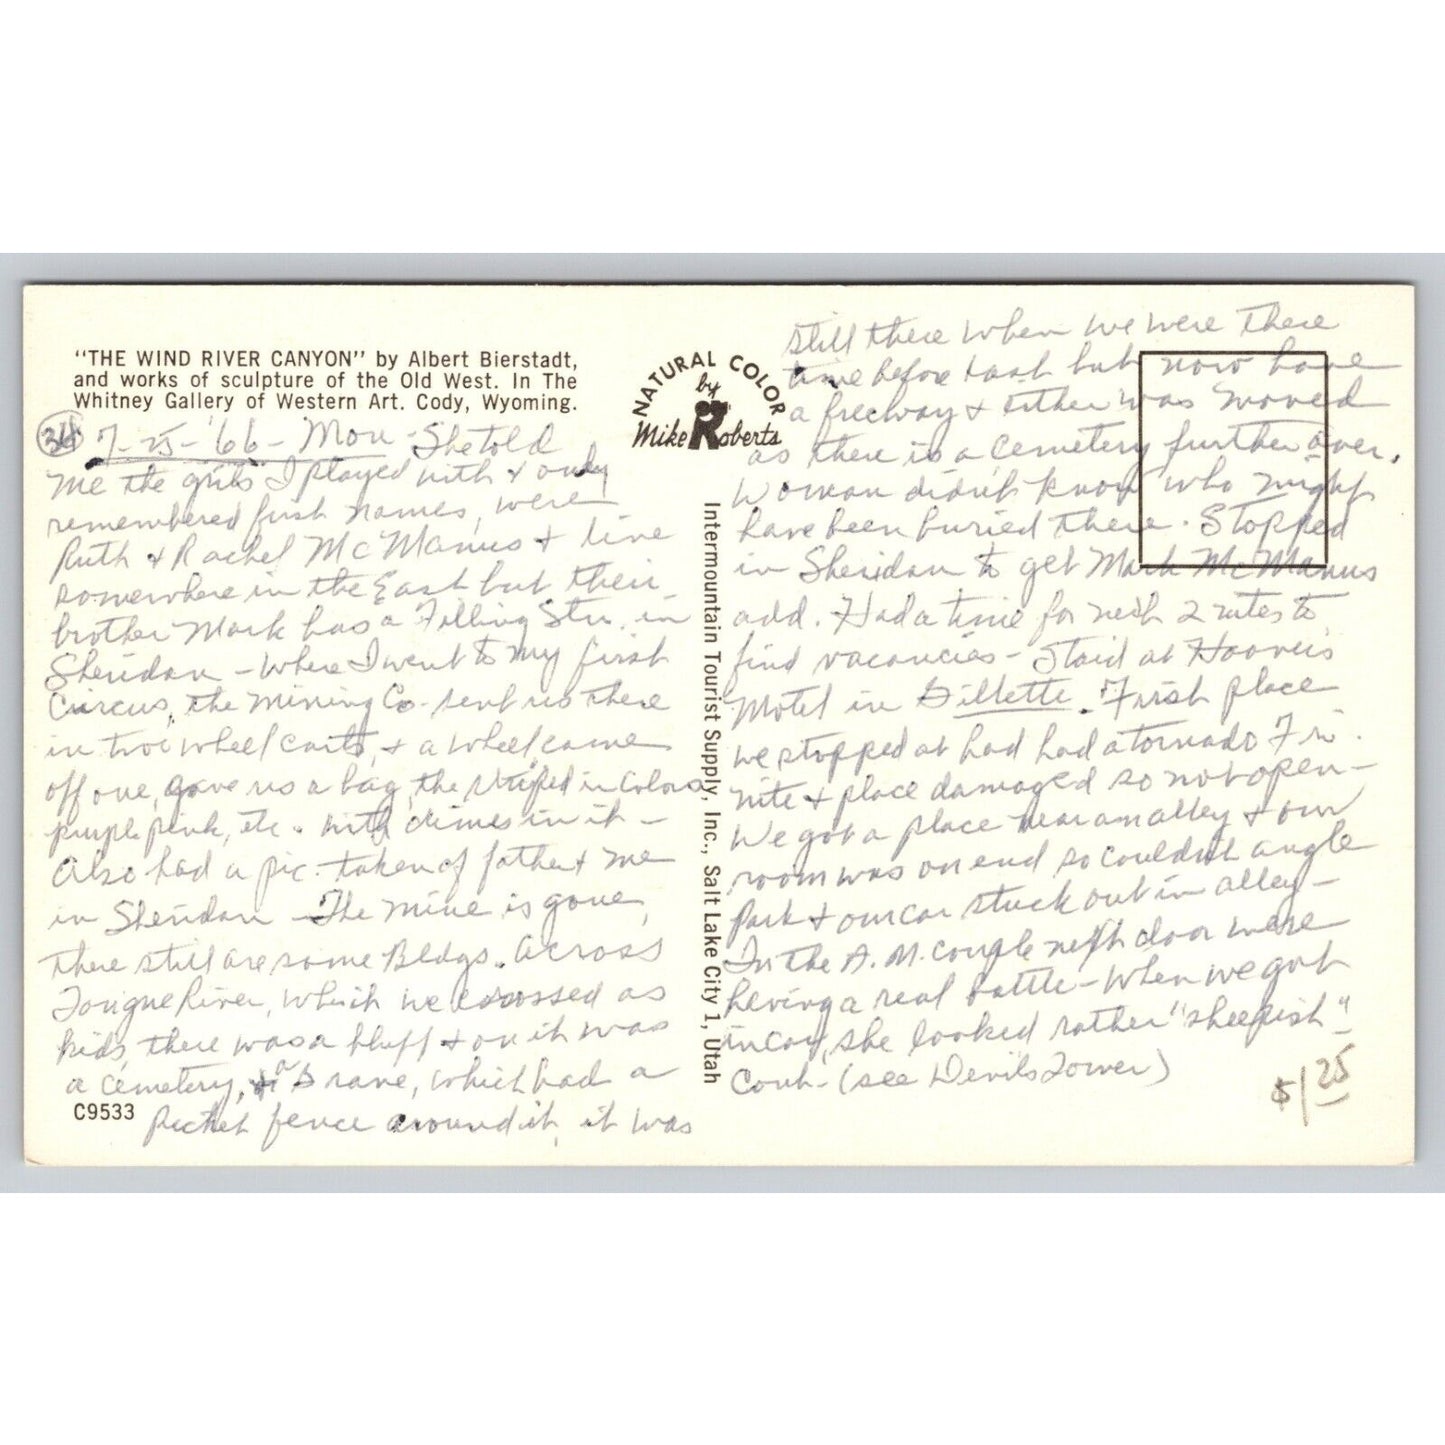 "THE WIND RIVER CANYON" by Albert Bierstadt,
and works of sculpture of the Old West. In The
Whitney Gallery of Western Art. Cody, Wyoming.
7-25-'66- Mon - She told
me the girls I played with & only
remembered first names, were
Ruth & Rachel McManus & live
somewhere in the East but their
brother Mark has a Filling Sta. in
Sheridan - where I went to my first
Circus, the Mining Co. sent us there
in two wheel carts, & a wheel came
off one, gave us a bag, the striped in colors
purple pink, etc. with dimes in it -
Also had a pic. taken of father & me
in Sheridan - The mine is gone,
there still are some Bldgs. Across
Tongue River, which we crossed as
kids, there was a bluff & on it was
a cemetery, a grave, which had a
Picket fence around it, it was
C9533
NATURAL COLOR
by
Mike Roberts
Intermountain Tourist Supply, Inc., Salt Lake City 1, Utah
still there when we were there
time before last but now have
a freeway & either was moved
as there is a cemetery further over.
Woman didn't know who might
have been buried there. Stopped
in Sheridan to get Mark McManus
add. Had a time for next 2 nites to
find vacancies - Staid at Hoover's
Motel in Gillette. First place
we stopped at had had a tornado Fri.
nite & place damaged so not open -
We got a place near an alley & our
room was on end so couldn't angle
Park & our car stuck out in alley -
In the A.M. couple next door were
having a real battle - When we got
in car, she looked rather "sheepish" -
Cont - (see Devils Tower)
$1.25